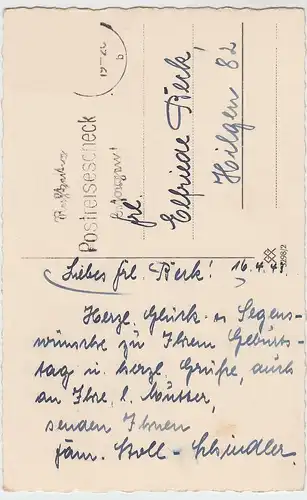 19-20
b
Postreisescheck
Frl.
Elfriede Rerk!
Hilgen 82
5098/2
Liebes Frl. Rerk! 16.4.43.
Herzl. Glück- u Segens-
wünsche zu Ihrem Geburts-
tag u. herzl. Grüße, auch
an Ihre l. Mutter,
senden Ihnen
Fam. Stoll-Schindler.